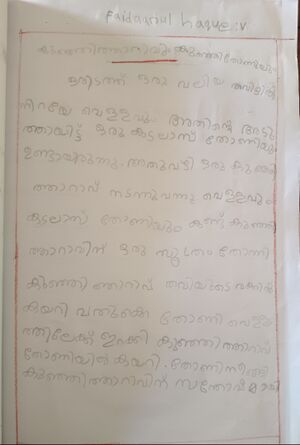 faidaanul haque :v
കുഞ്ഞിത്താറാവും കുഞ്ഞിതോണിയും
ഒരിടത്ത് ഒരു വലിയ
നിറയേ വെള്ളവും അതിന്റെ അടു
ത്തായിട്ട് ഒരു കടലാസ് തോണിയും
ഉണ്ടായിരുന്നു. അതുവഴി ഒരു കുഞ്ഞി
ത്താറാവ് നടന്നുവന്നു വെള്ളവും
കടലാസ് തോണിയും കണ്ട് കുഞ്ഞി
ത്താറാവിന് ഒരു സൂത്രം തോന്നി
കുഞ്ഞി ത്താറാവ്
കയറി തോണി വെള്ള
ത്തിലേക്ക് ഇറക്കി കുഞ്ഞിത്താറാവ്
തോണിയിൽ കയറി. തോണി നീങ്ങി
കുഞ്ഞിത്താറാവിന് സന്തോഷമായി